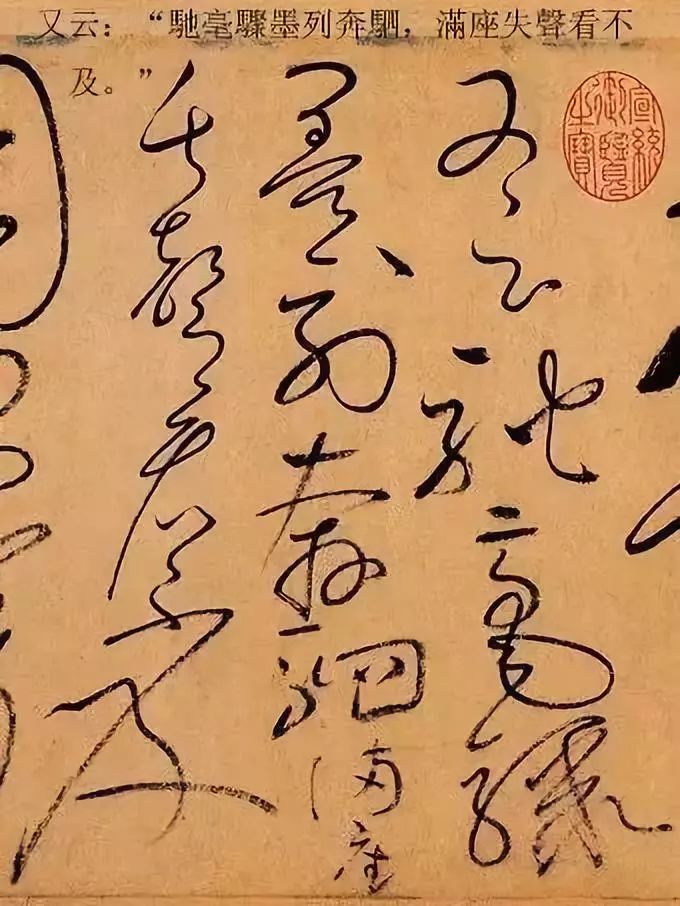 又云：“馳毫驟墨列奔駟，滿座失聲看不
及。”
又云馳毫驟
墨列奔駟滿座
失聲看不及
宣統御覽之寶